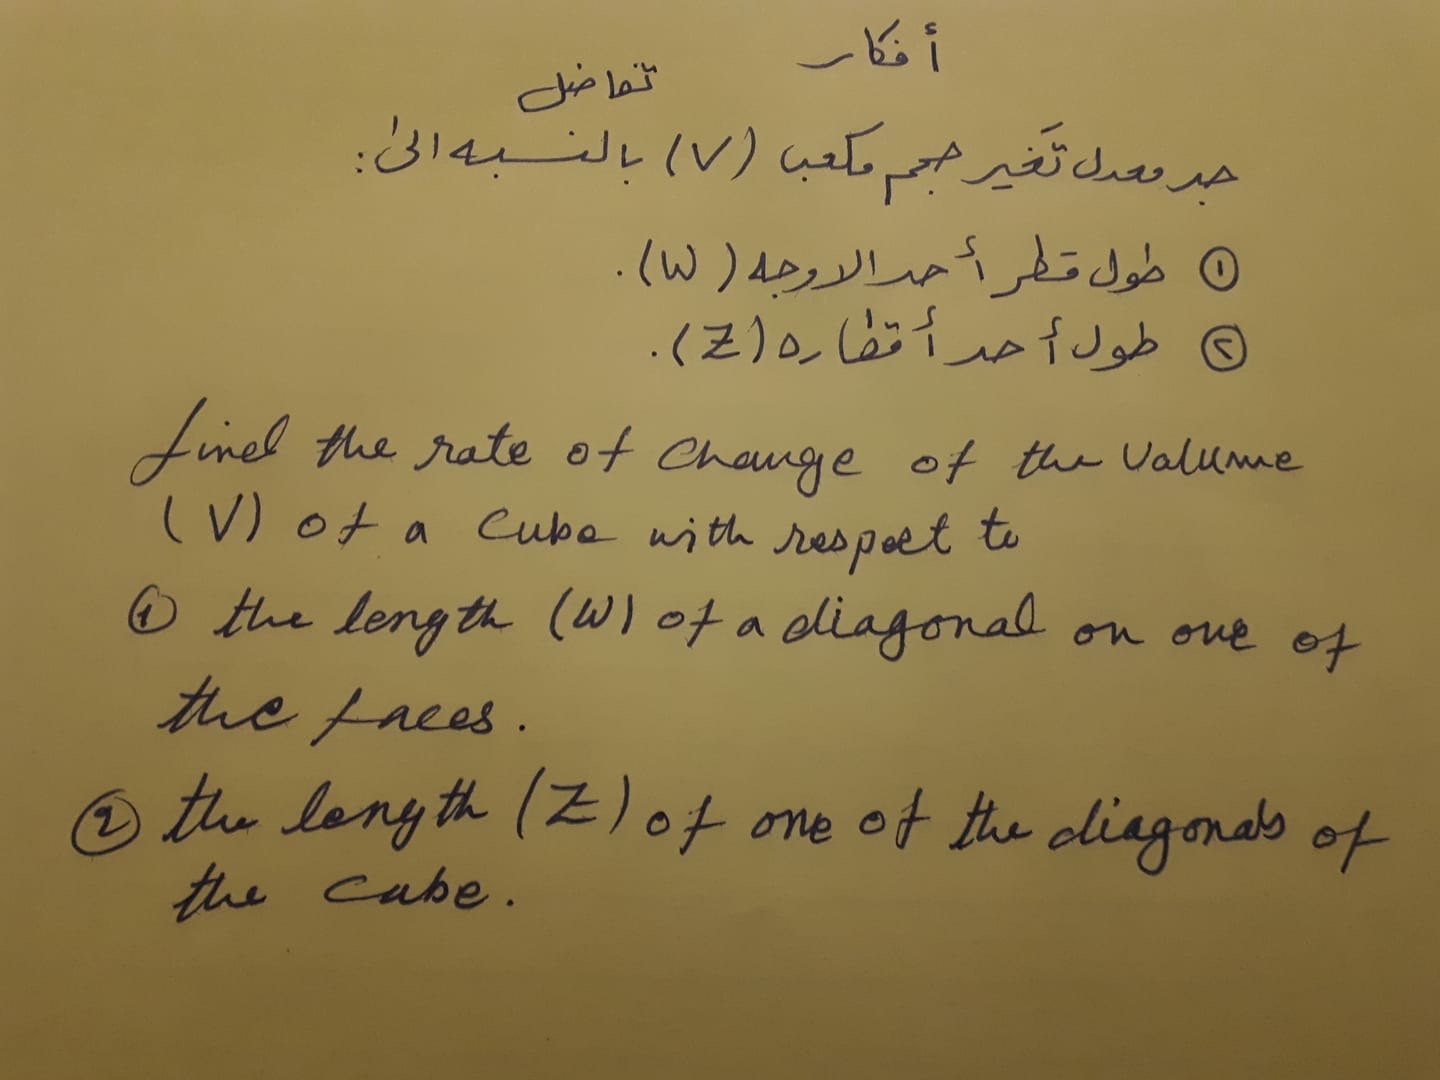 أفكار
تفاضل
جد معدل تَغير حجم مكعب (V) بالنسبه الى:
① طول قطر أحد الاوجه (W).
② طول أحد أقطاره (Z).
find the rate of Change of the Valume
(V) of a Cube with respect to
① the length (W) of a diagonal on one of
the faces.
② the length (Z) of one of the diagonals of
the cube.